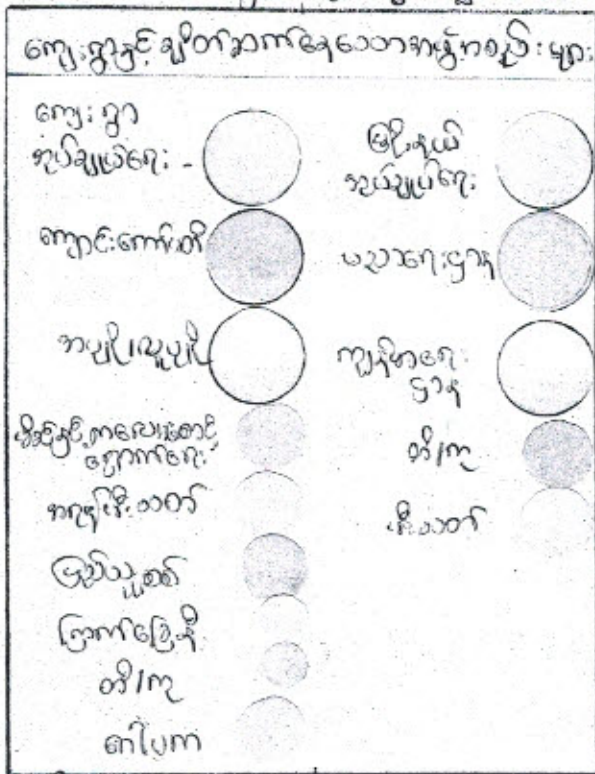 ကျေးရွာနှင့် ချိတ်ဆက်နေသောအဖွဲ့အစည်းများ
ကျေးရွာ
အုပ်ချုပ်ရေး -
ကျောင်းကော်မတီ
အပျို/လူပျို
မိခင်နှင့် ကလေးစောင့်
ရှောက်ရေး
အရန်မီးသတ်
ပြည်သူ့စစ်
ကြက်ခြေနီ
တိ/ကု
မြို့နယ်
အုပ်ချုပ်ရေး
ပညာရေးဌာန
ကျန်းမာရေး
ဌာန
တိ/ကု
မီးသတ်